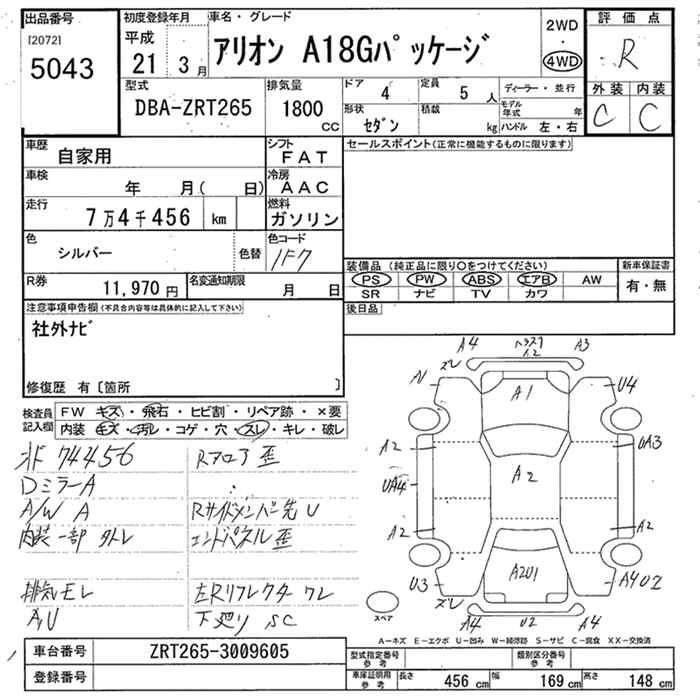 出品番号
[2072]
5043
初度登録年月
平成
21 3月
車名・グレード
アリオン A18Gパッケージ
2WD
・
4WD
評価点
R
外装 内装
C C
型式
DBA-ZRT265
排気量
1800
CC
ドア 4
定員 5 人
形状 セダン
積載 kg
ディーラー・並行
モデル年式 年
ハンドル 左・右
車歴 自家用
シフト FAT
車検 年 月( 日)
冷房 AAC
走行 7万4千456 km
燃料 ガソリン
色 シルバー 色替
色コード 1F7
R券 11,970 円
名変通知期限 月 日
セールスポイント(正常に機能するものに限ります)
装備品 (純正品に限り○をつけてください)
PS PW ABS エアB AW
SR ナビ TV カワ
新車保証書
有・無
後日品
注意事項申告欄(不具合内容等は具体的に記入して下さい)
社外ナビ
修復歴 有〔箇所 〕
検査員記入欄
FW キズ・飛石・ヒビ割・リペア跡・×要
内装 キズ・汚レ・コゲ・穴・スレ・キレ・破レ
外 74456
DミラーA
A/W A
内装一部 外レ
排気モレ
A,U
Rフロア 歪
Rサイドメンバー先 U
エンドパネル歪
左Rリフレクター ワレ
下廻り SC
A4 A2 A3
ズレ
A1
U4
A2
UA3
UA4
A2
A2
A2
U3
A2U1
A4U2
ズレ
A4 U2 A4
スペア
A－キズ E－エクボ U－凹み W－補修跡 S－サビ C－腐食 XX－交換済
車台番号 ZRT265-3009605
登録番号
型式指定番号 参考
類別区分番号 参考
車庫証明用 参考
長さ 456 cm
幅 169 cm
高さ 148 cm